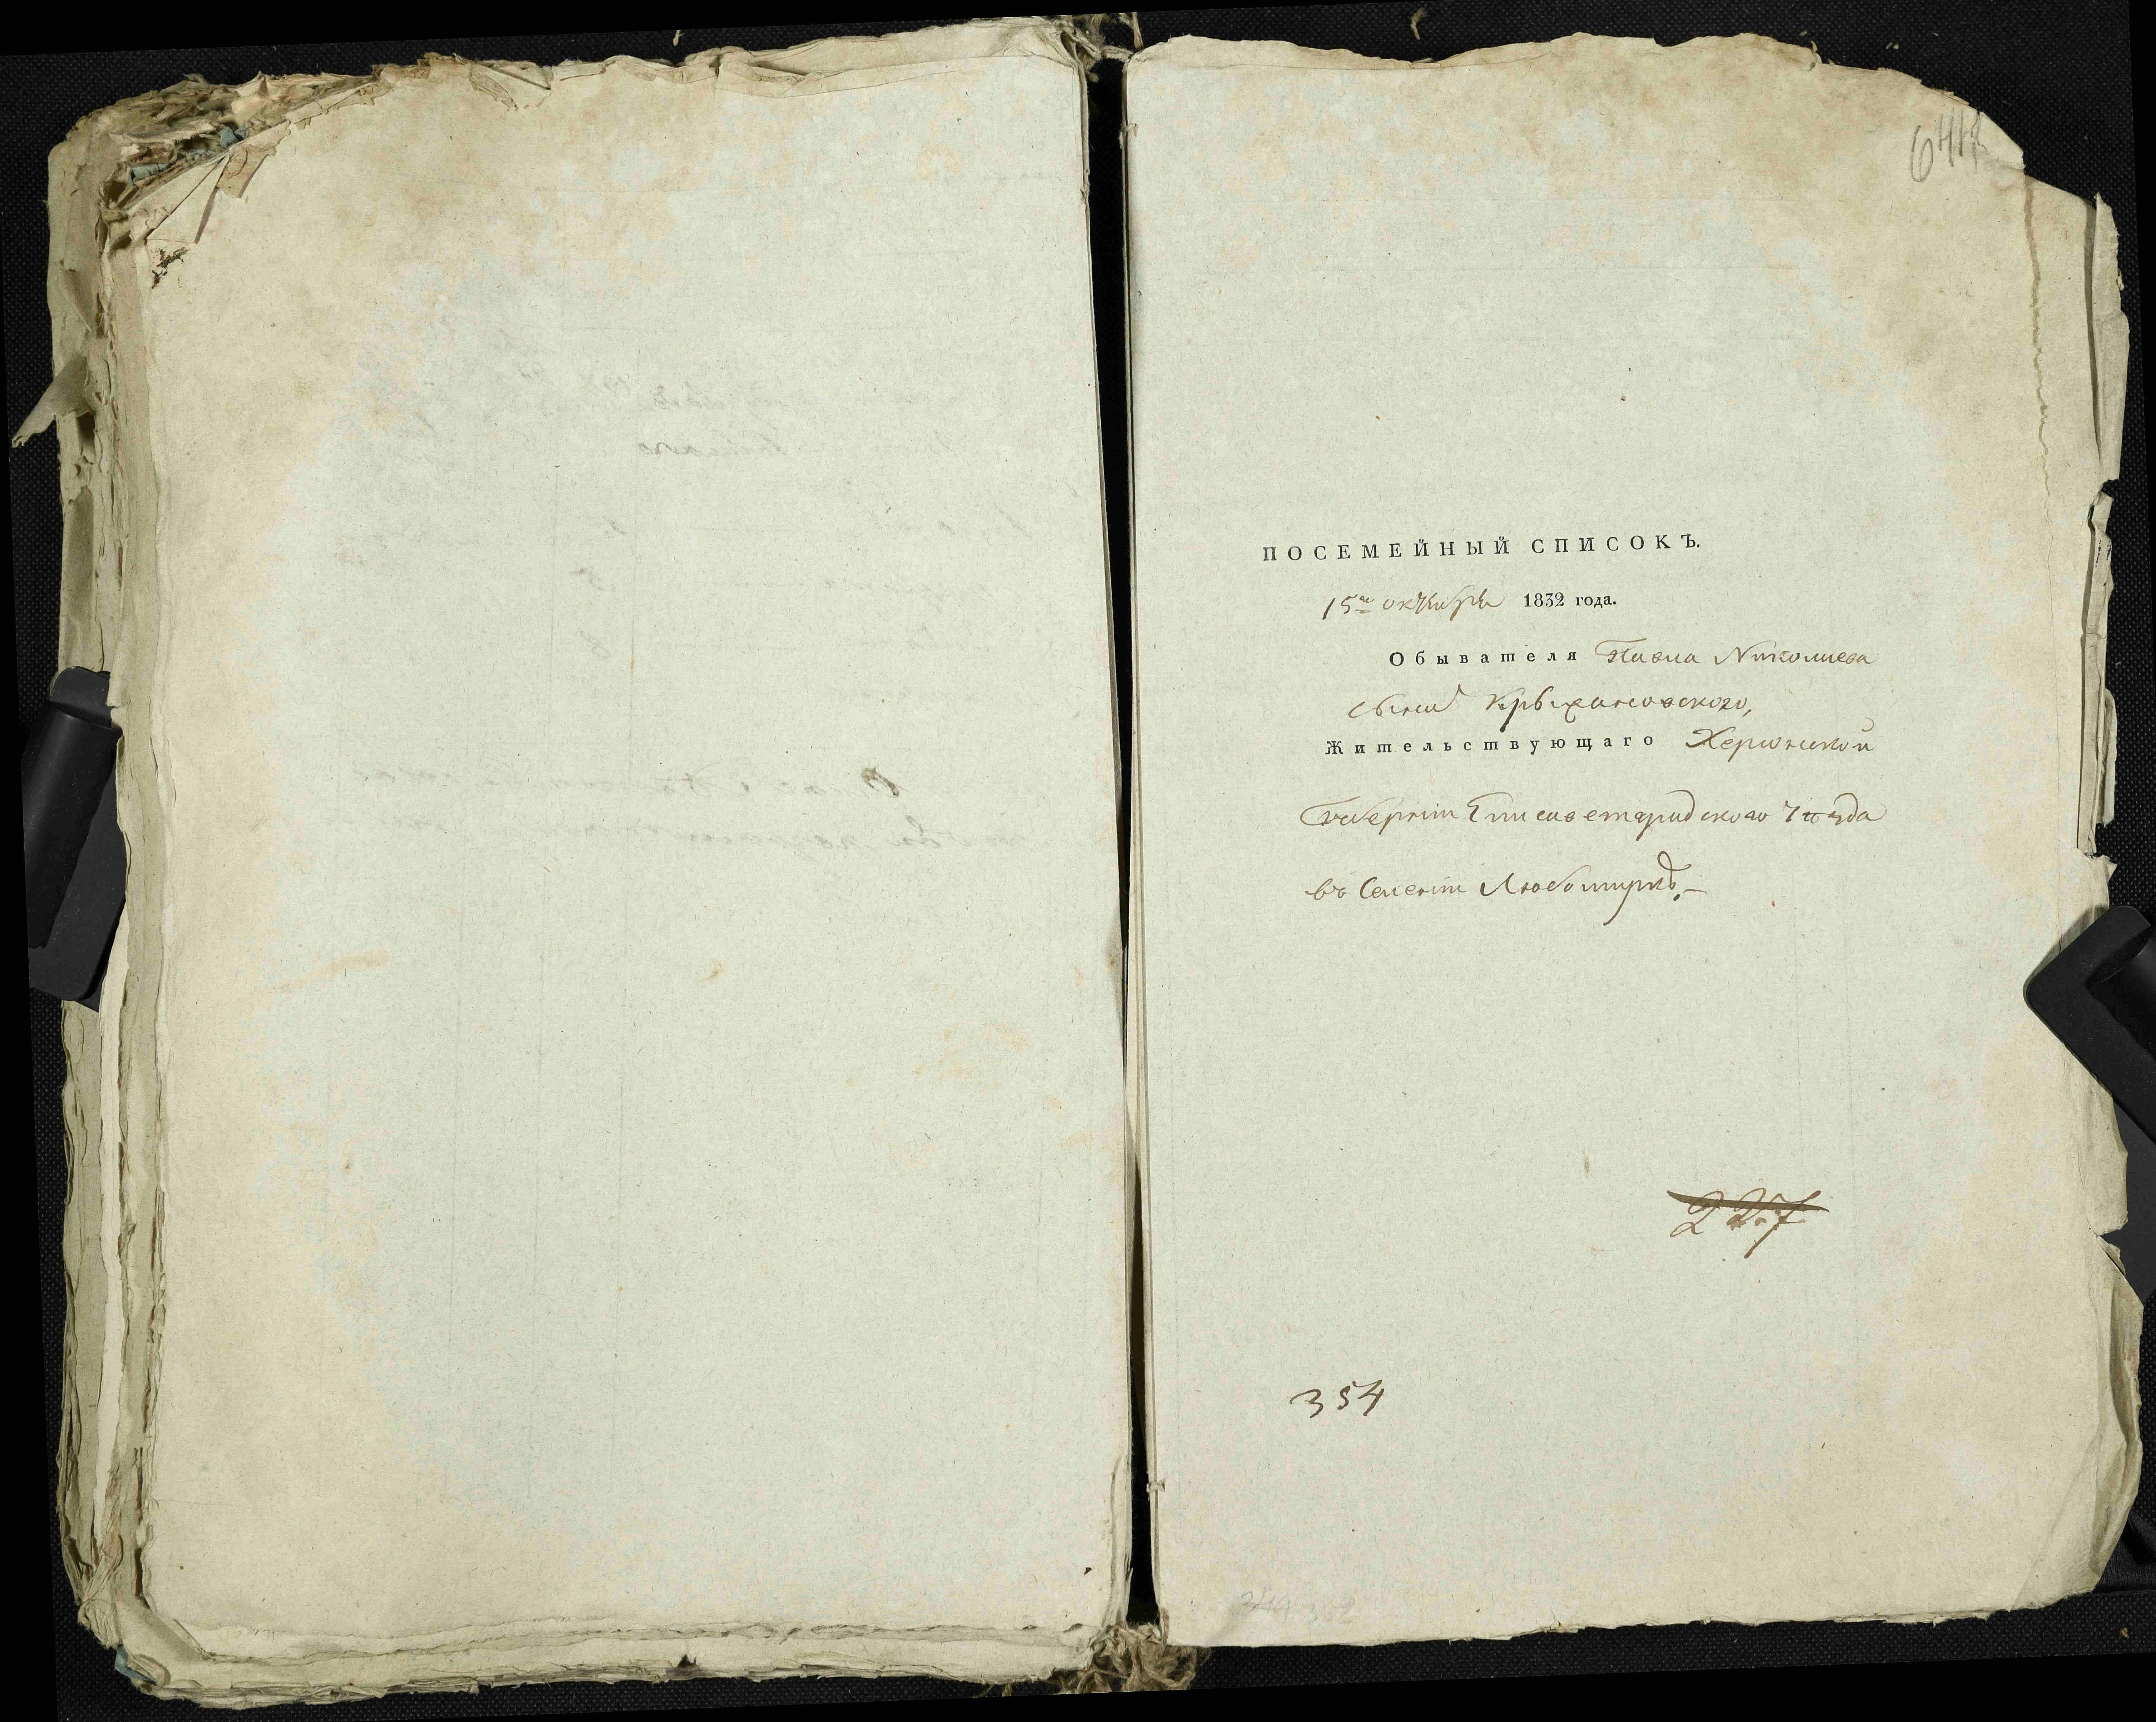 ПОСЕМЕЙНЫЙ СПИСОКЪ.
15го октября 1832 года.
Обывателя Павла Николаева
сына Крыжановского,
Жительствующаго Херсонской
Губерніи Елисаветградского Уѣзда
въ Селеніи Любомиркѣ.
227
354